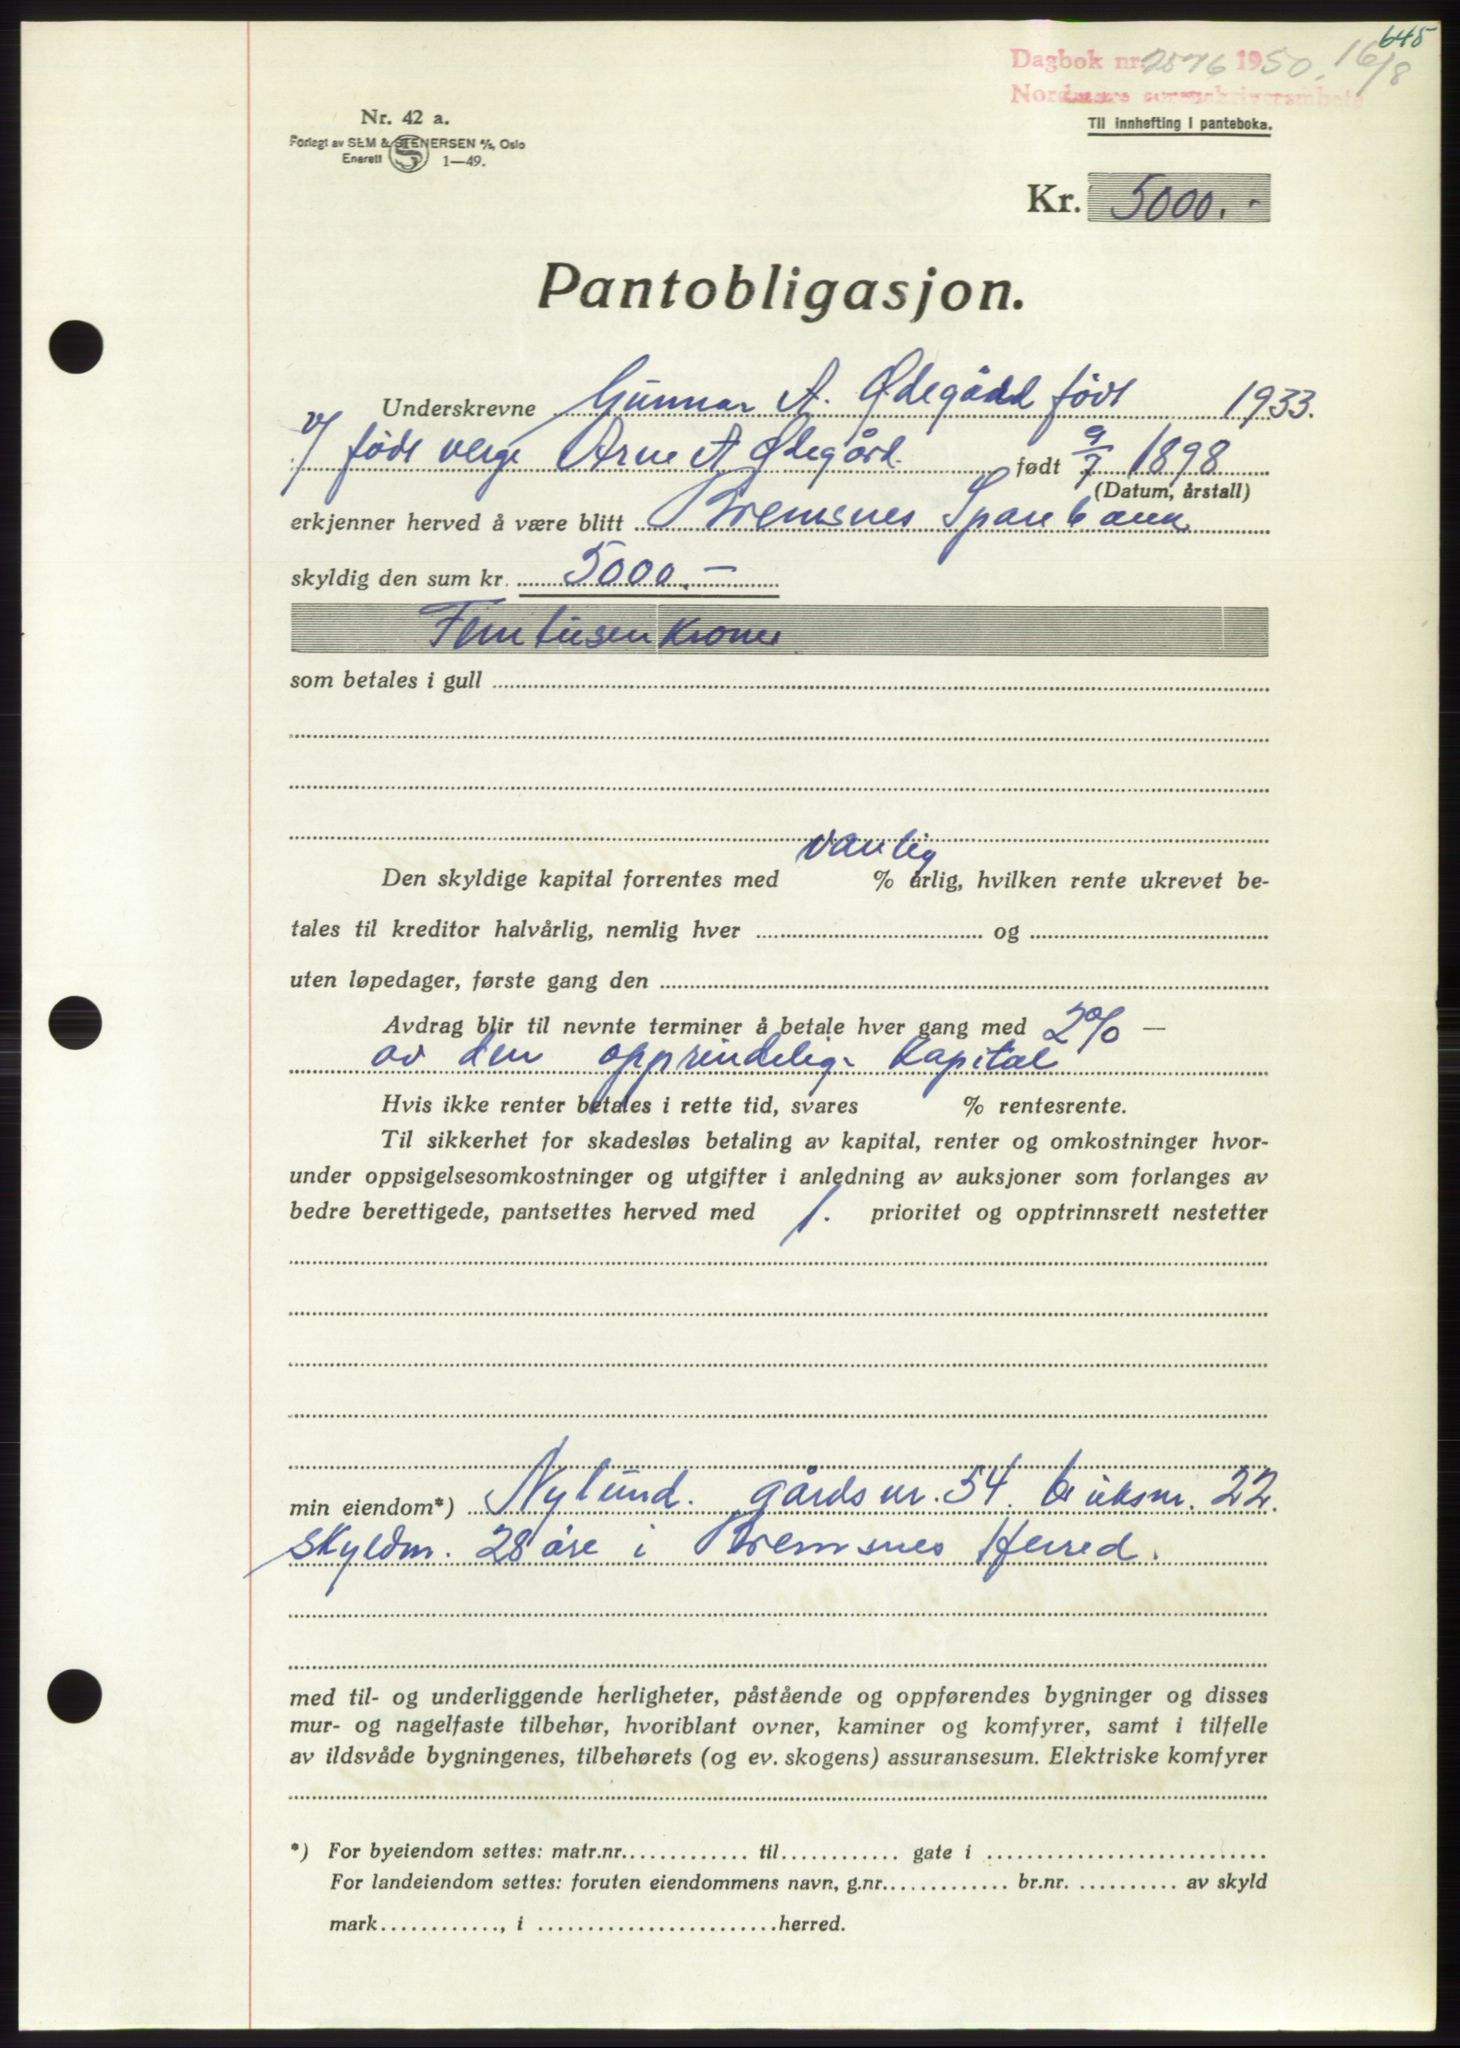 645
Dagbok nr. 2576 1950. 16/8
Nordmøre sorenskriverembete
Til innhefting i panteboka.
Nr. 42 a.
Forlagt av SEM & STENERSEN A/S, Oslo
Enerett 1—49.
Kr. 5000.-
Pantobligasjon.
Underskrevne Gunnar A. Ødegård født 1933.
v/ født verge Arne A Ødegård. født 9/7 1898
(Datum, årstall)
erkjenner herved å være blitt Bremsnes Sparebank
skyldig den sum kr. 5000.-
Femtusen kroner
som betales i gull
vanlig
Den skyldige kapital forrentes med % årlig, hvilken rente ukrevet be-
tales til kreditor halvårlig, nemlig hver og
uten løpedager, første gang den
Avdrag blir til nevnte terminer å betale hver gang med 2% —
av den opprindelige kapital
Hvis ikke renter betales i rette tid, svares % rentesrente.
Til sikkerhet for skadesløs betaling av kapital, renter og omkostninger hvor-
under oppsigelsesomkostninger og utgifter i anledning av auksjoner som forlanges av
bedre berettigede, pantsettes herved med 1. prioritet og opptrinnsrett nestetter
min eiendom*) Nylund. gårdsnr. 54. bruksnr. 22.
skyldm. 28 øre i Bremsnes Herred.
med til- og underliggende herligheter, påstående og oppførendes bygninger og disses
mur- og nagelfaste tilbehør, hvoriblant ovner, kaminer og komfyrer, samt i tilfelle
av ildsvåde bygningenes, tilbehørets (og ev. skogens) assuransesum. Elektriske komfyrer
*) For byeiendom settes: matr.nr. til gate i
For landeiendom settes: foruten eiendommens navn, g.nr. br.nr. av skyld
mark , i herred.